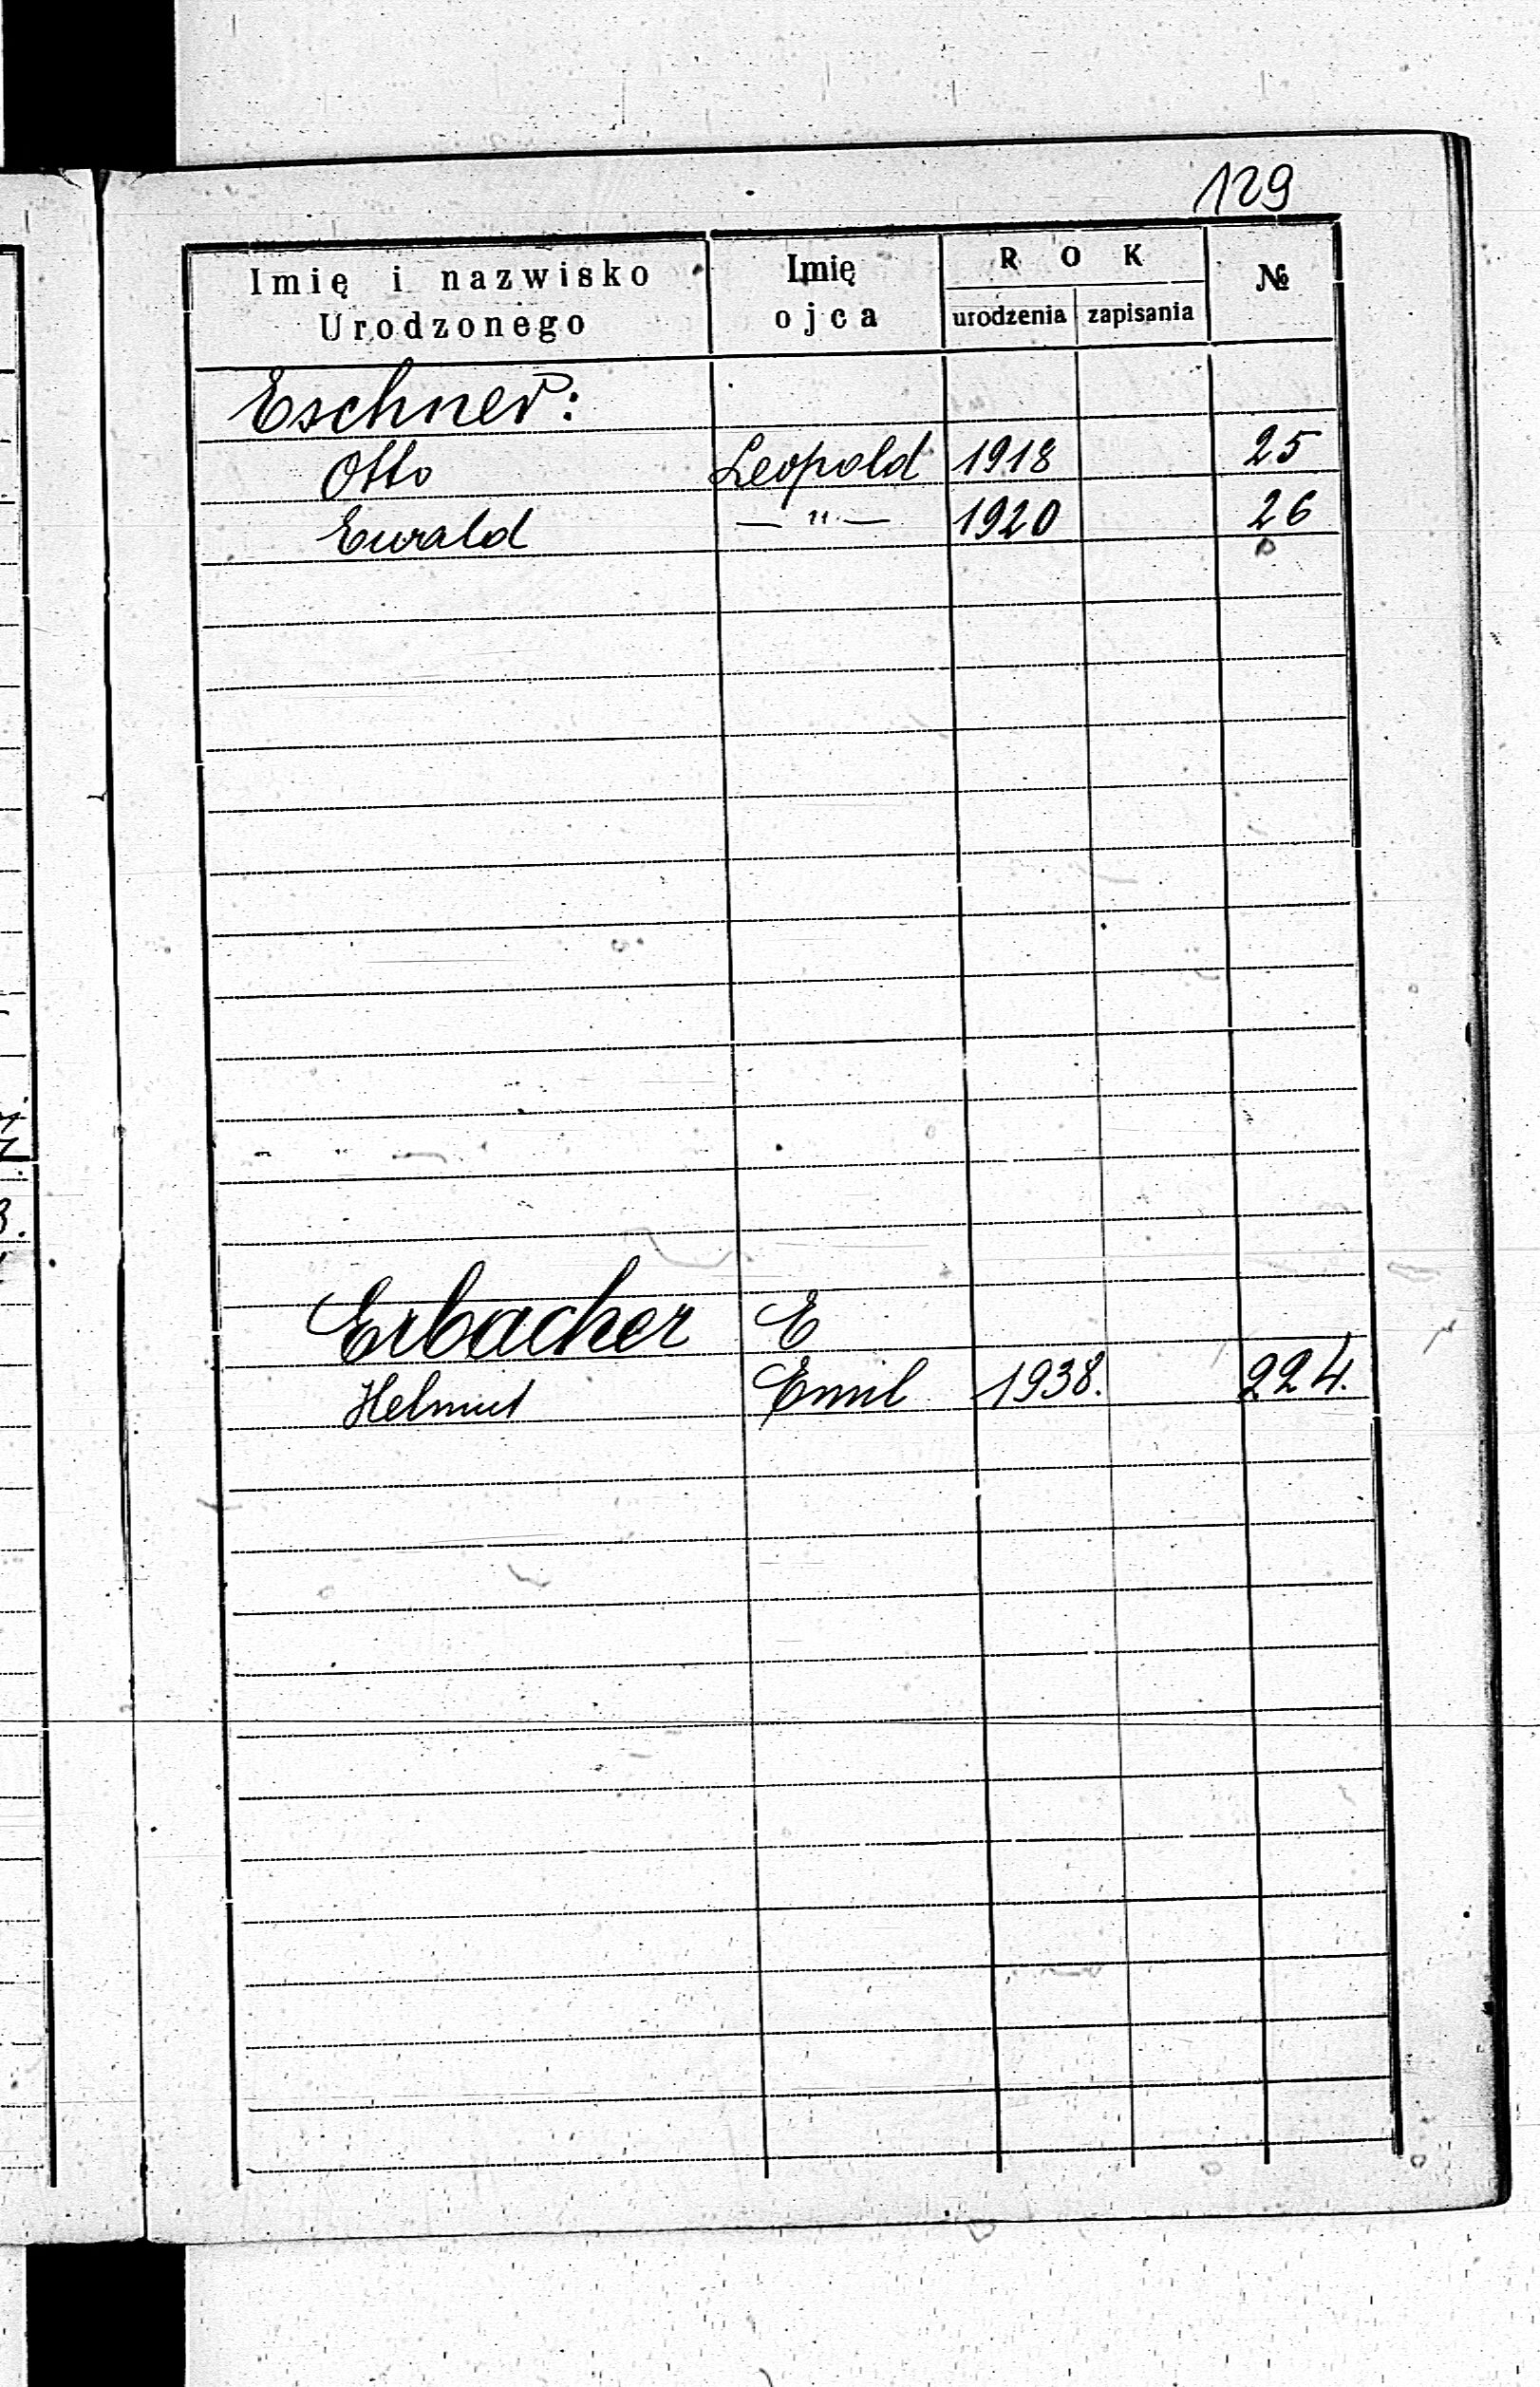 129
Imię i nazwisko Urodzonego
Imię ojca
ROK
urodzenia zapisania
№
Eschner:
Otto Leopold 1918 25
Ewald — " — 1920 26
Erbacher E
Helmut Emil 1938. 224.